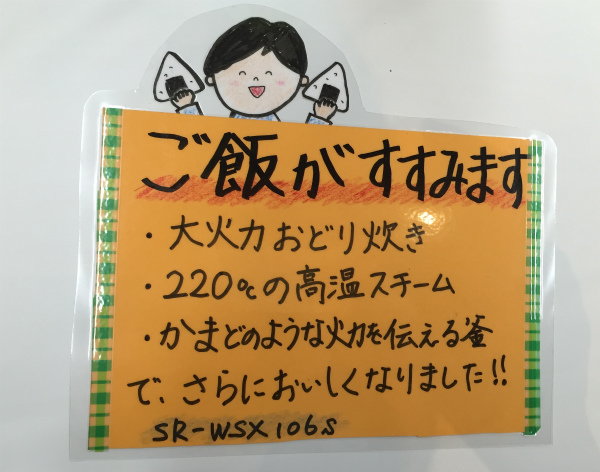 ご飯がすすみます
・大火力おどり炊き
・220℃の高温スチーム
・かまどのような火力を伝える釜
で、さらにおいしくなりました!!
SR-WSX106S